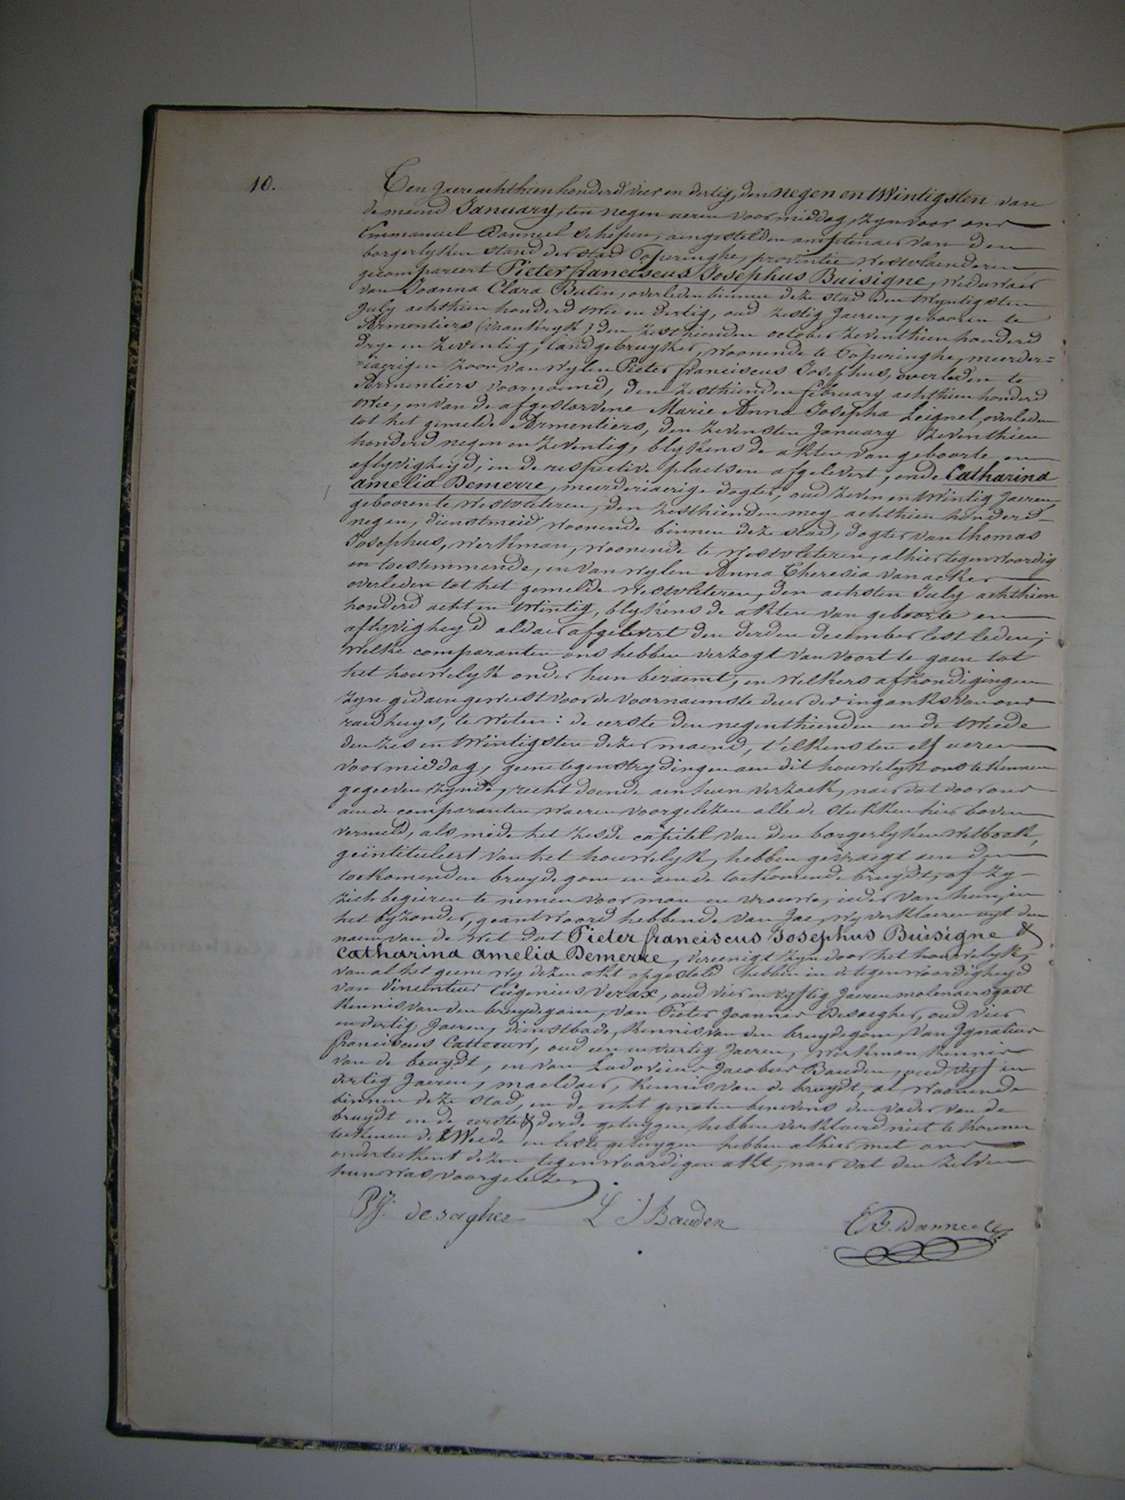 10.
Ten Jaere achthien honderd vier en dertig, den negen en twintigsten van
de maend January, ten negen ueren voormiddag, zyn voor ons
Emmanuel Danneel Schepen, aengestelden amptenaer van den
borgerlyken stand der stad Poperinghe, provintie Westvlaenderen
gecompareert Pieter franciscus Josephus Buisigne, Weduwaer
van Joanna Clara Butin, overleden binnen deze stad den twyntigsten
July achthien honderd drie en dertig, oud zestig Jaeren, gebooren te
Armentiers (vrankryk) den zesthienden october zeventhien honderd
drye en zeventig, landgebruyker, woonende te Poperinghe, meerder=
=iaerigen zoon van wylen Pieter franciscus Josephus, overleden te
Armentiers voornaemd, den zesthienden february achthien honderd
drie, en van de afgestorvene Marie Anna Josepha Leignel, overleden
tot het gemelde Armentiers, den zevensten January zeventhien
honderd negen en zeventig, blykens de akten van geboorte en
aflyvigheyd, in de respective plaetsen afgelevert, ende Catharina
amelia Demerre, meerderiaerige dogter, oud zeven en twintig Jaeren
gebooren te Westvleteren, den zesthienden mey achthien honderd
negen, dienstmeid woonende binnen deze stad, dogter van thomas
Josephus, werkman, woonende te Westvleteren, alhier tegenwoordig
en toestemmende, en van wylen Anna Theresia vanacker
overleden tot het gemelde Westvleteren, den achsten July achthien
honderd acht en twintig, blykens de akten van geboorte en
aflyvigheyd aldaer afgelevert den derden december lest leden;
welke comparanten ons hebben verzogt van voort te gaen tot
het houwelyk onder hun beraemt, en welkers afkondigingen
zyn gedaen geweest voor de voornaemste deur der ingank van ons
raedhuys, te weten: de eerste den negenthienden en de twede
den zes en twintigsten dezer maend, t'elkens ten elf ueren
voormiddag, geene tegenstrydingen aen dit houwelyk ons te kennen
gegeven zynde, recht doende aen hun verzoek, naer dat door ons
aen de comparanten waeren voorgelezen alle de stukken hier boven
vermeld, als mede het zesde capitel van den borgerlyken Wetboek,
geïntituleert van het houwelyk, hebben gevraegt aen den
toekomenden bruydegom en aen de toekomende bruydt, of zy
zich begieren te nemen voor man en vrouwe, ieder van hun, in
het byzonder, geantwoord hebbende van Jae, wy verklaeren uyt den
naem van de Wet dat Pieter franciscus Josephus Buisigne &
Catharina amelia Demerre, vereenigt zyn door het houwelyk,
van al het geene wy dezen akt opgesteld hebben in de tegenwoordigheyd
van Vincentius Eugenius Verax, oud vier en vyftig Jaeren molenaersgast
kennis van den bruydegom, van Pieter Joannes Desaegher, oud vier
en dertig Jaeren, dienstbode, kennis van den bruydegom, van Ignatius
franciscus Cattoeurt, oud een en veertig Jaeren, werkman kennis
van de bruydt, en van Ludovicus Jacobus Bauden, oud vyf en
dertig Jaeren, maeldaer, kennis van de bruydt, al woonende
binnen deze stad, en de echt genoten benevens den vader van de
bruydt en de eerste & derde getuygen hebben verklaerd niet te konnen
teekenen de twede en leste getuygen hebben alhier met ons
onderteekent dezen tegenwoordigen akt, naer dat den zelven
hun was voorgelezen
P.J. de sagher L J Bauden E B. Danneel